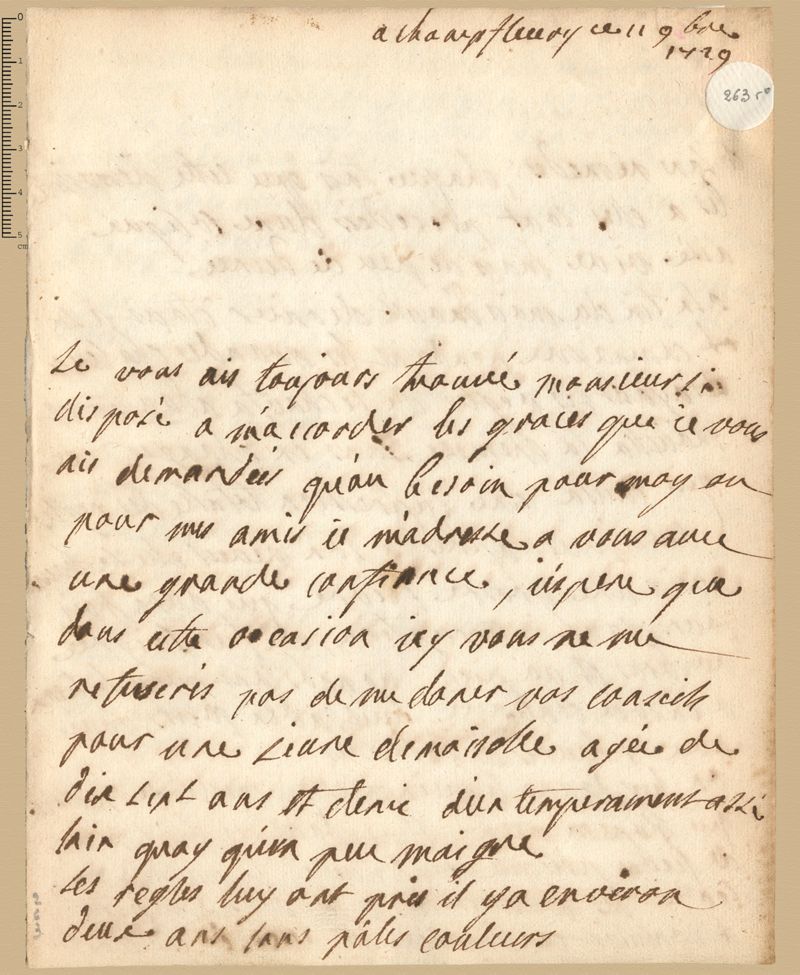 a champfleury ce 11 9bre
1729
263 r°
Je vous ais toujours trouvé monsieur si
disposé a m'accorder les graces que ie vous
ais demandées qu'au besoin pour moy ou
pour mes amis ie m'adresse a vous avec
une grande confiance, i'espere que
dans cette occasion icy vous ne me
refuserés pas de me doner vos conseils
pour une jeune demoiselle agée de
dix sept ans et demie d'un temperament assé
sain quoy qu'un peu maigre
les regles luy ont pris il y a environ
deux ans sans pales couleurs